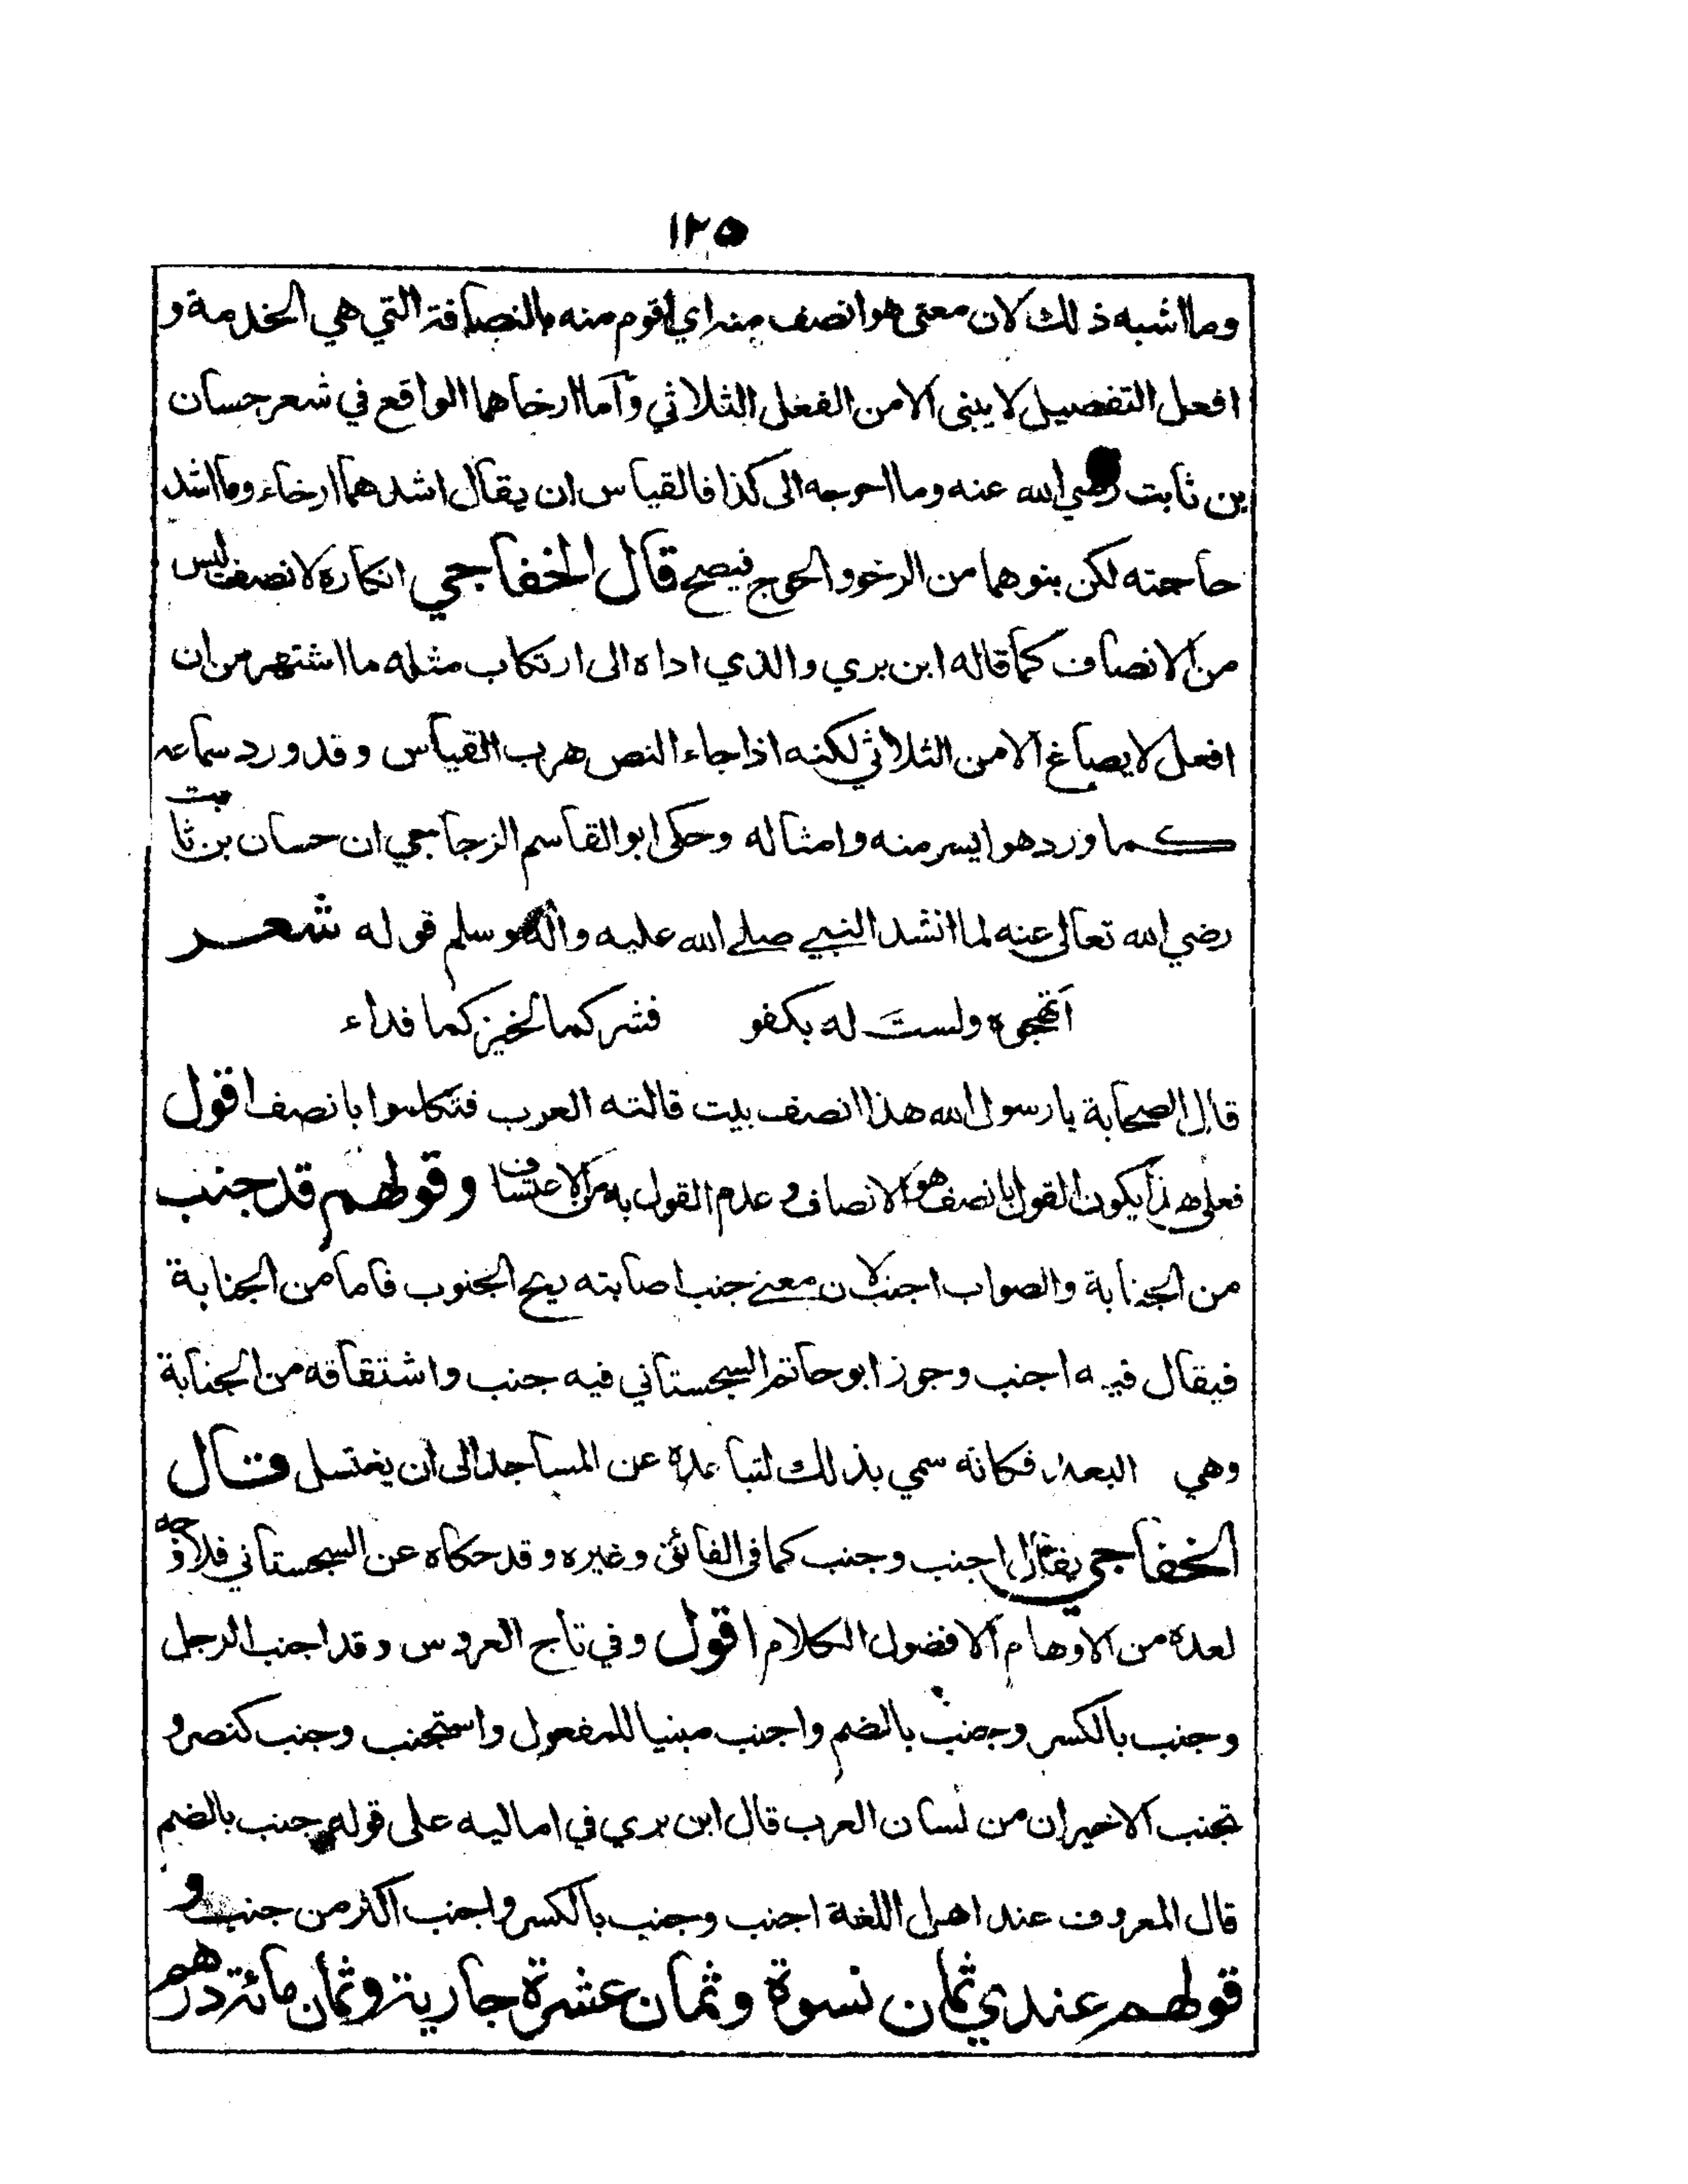 ١٢٥
وما اشبه ذلك لان معنى هو انصف منه اي اقوم منه بالنصافة التي هي الخدمة و
افعل التفضيل لا يبنى الا من الفعل الثلاثي وأما ارخاهما الواقع في شعر حسان
بن ثابت رضي الله عنه وما احوجه الى كذا فالقياس ان يقال اشدهما ارخاء وما اشد
حاجته لكن بنوهما من الرخو والحوج فيصح قال الخفاجي انكاره لانصف ليس
من الانصاف كما قاله ابن بري والذي اداه الى ارتكاب مثله ما اشتهر من ان
افعل لا يصاغ الا من الثلاثي لكنه اذا جاء النص هرب القياس وقد ورد سماعه
كما ورد هو ايسر منه وامثاله وحكى ابو القاسم الزجاجي ان حسان بن ثابت
رضي الله تعالى عنه لما انشد النبي صلے الله عليه واله وسلم قوله شعر
اَتهجوه ولستَ له بكفو فشركما لخيركما فداء
قال الصحابة يا رسول الله هذا انصف بيت قالته العرب فتكلموا بانصف اقول
فعلى هذا يكون القول بانصف هو الانصاف و عدم القول به من الاعتساف وقولهم قد جنب
من الجنابة والصواب اجنب لان معنے جنب اصابته ريح الجنوب فاما من الجنابة
فيقال فيه اجنب وجوز ابو حاتم السجستاني فيه جنب واشتقاقه من الجنابة
وهي البعد فكانه سمي بذلك لتباعده عن المساجد الى ان يغتسل قال
الخفاجي يقال اجنب وجنب كما فى الفائق وغيره وقد حكاه عن السجستاني فلا وجه
لعده من الاوهام الا فضول الكلام اقول وفي تاج العروس وقد اجنب الرجل
وجنب بالكسر وجنب بالضم واجنب مبنيا للمفعول واستجنب وجنب كنصر و
تجنب الاخيران من لسان العرب قال ابن بري في اماليه على قوله جنب بالضم
قال المعروف عند اهل اللغة اجنب وجنب بالكسر واجنب اكثر من جنب و
قولهم عندي ثمان نسوة وثمان عشرة جارية وثمان مائة درهم